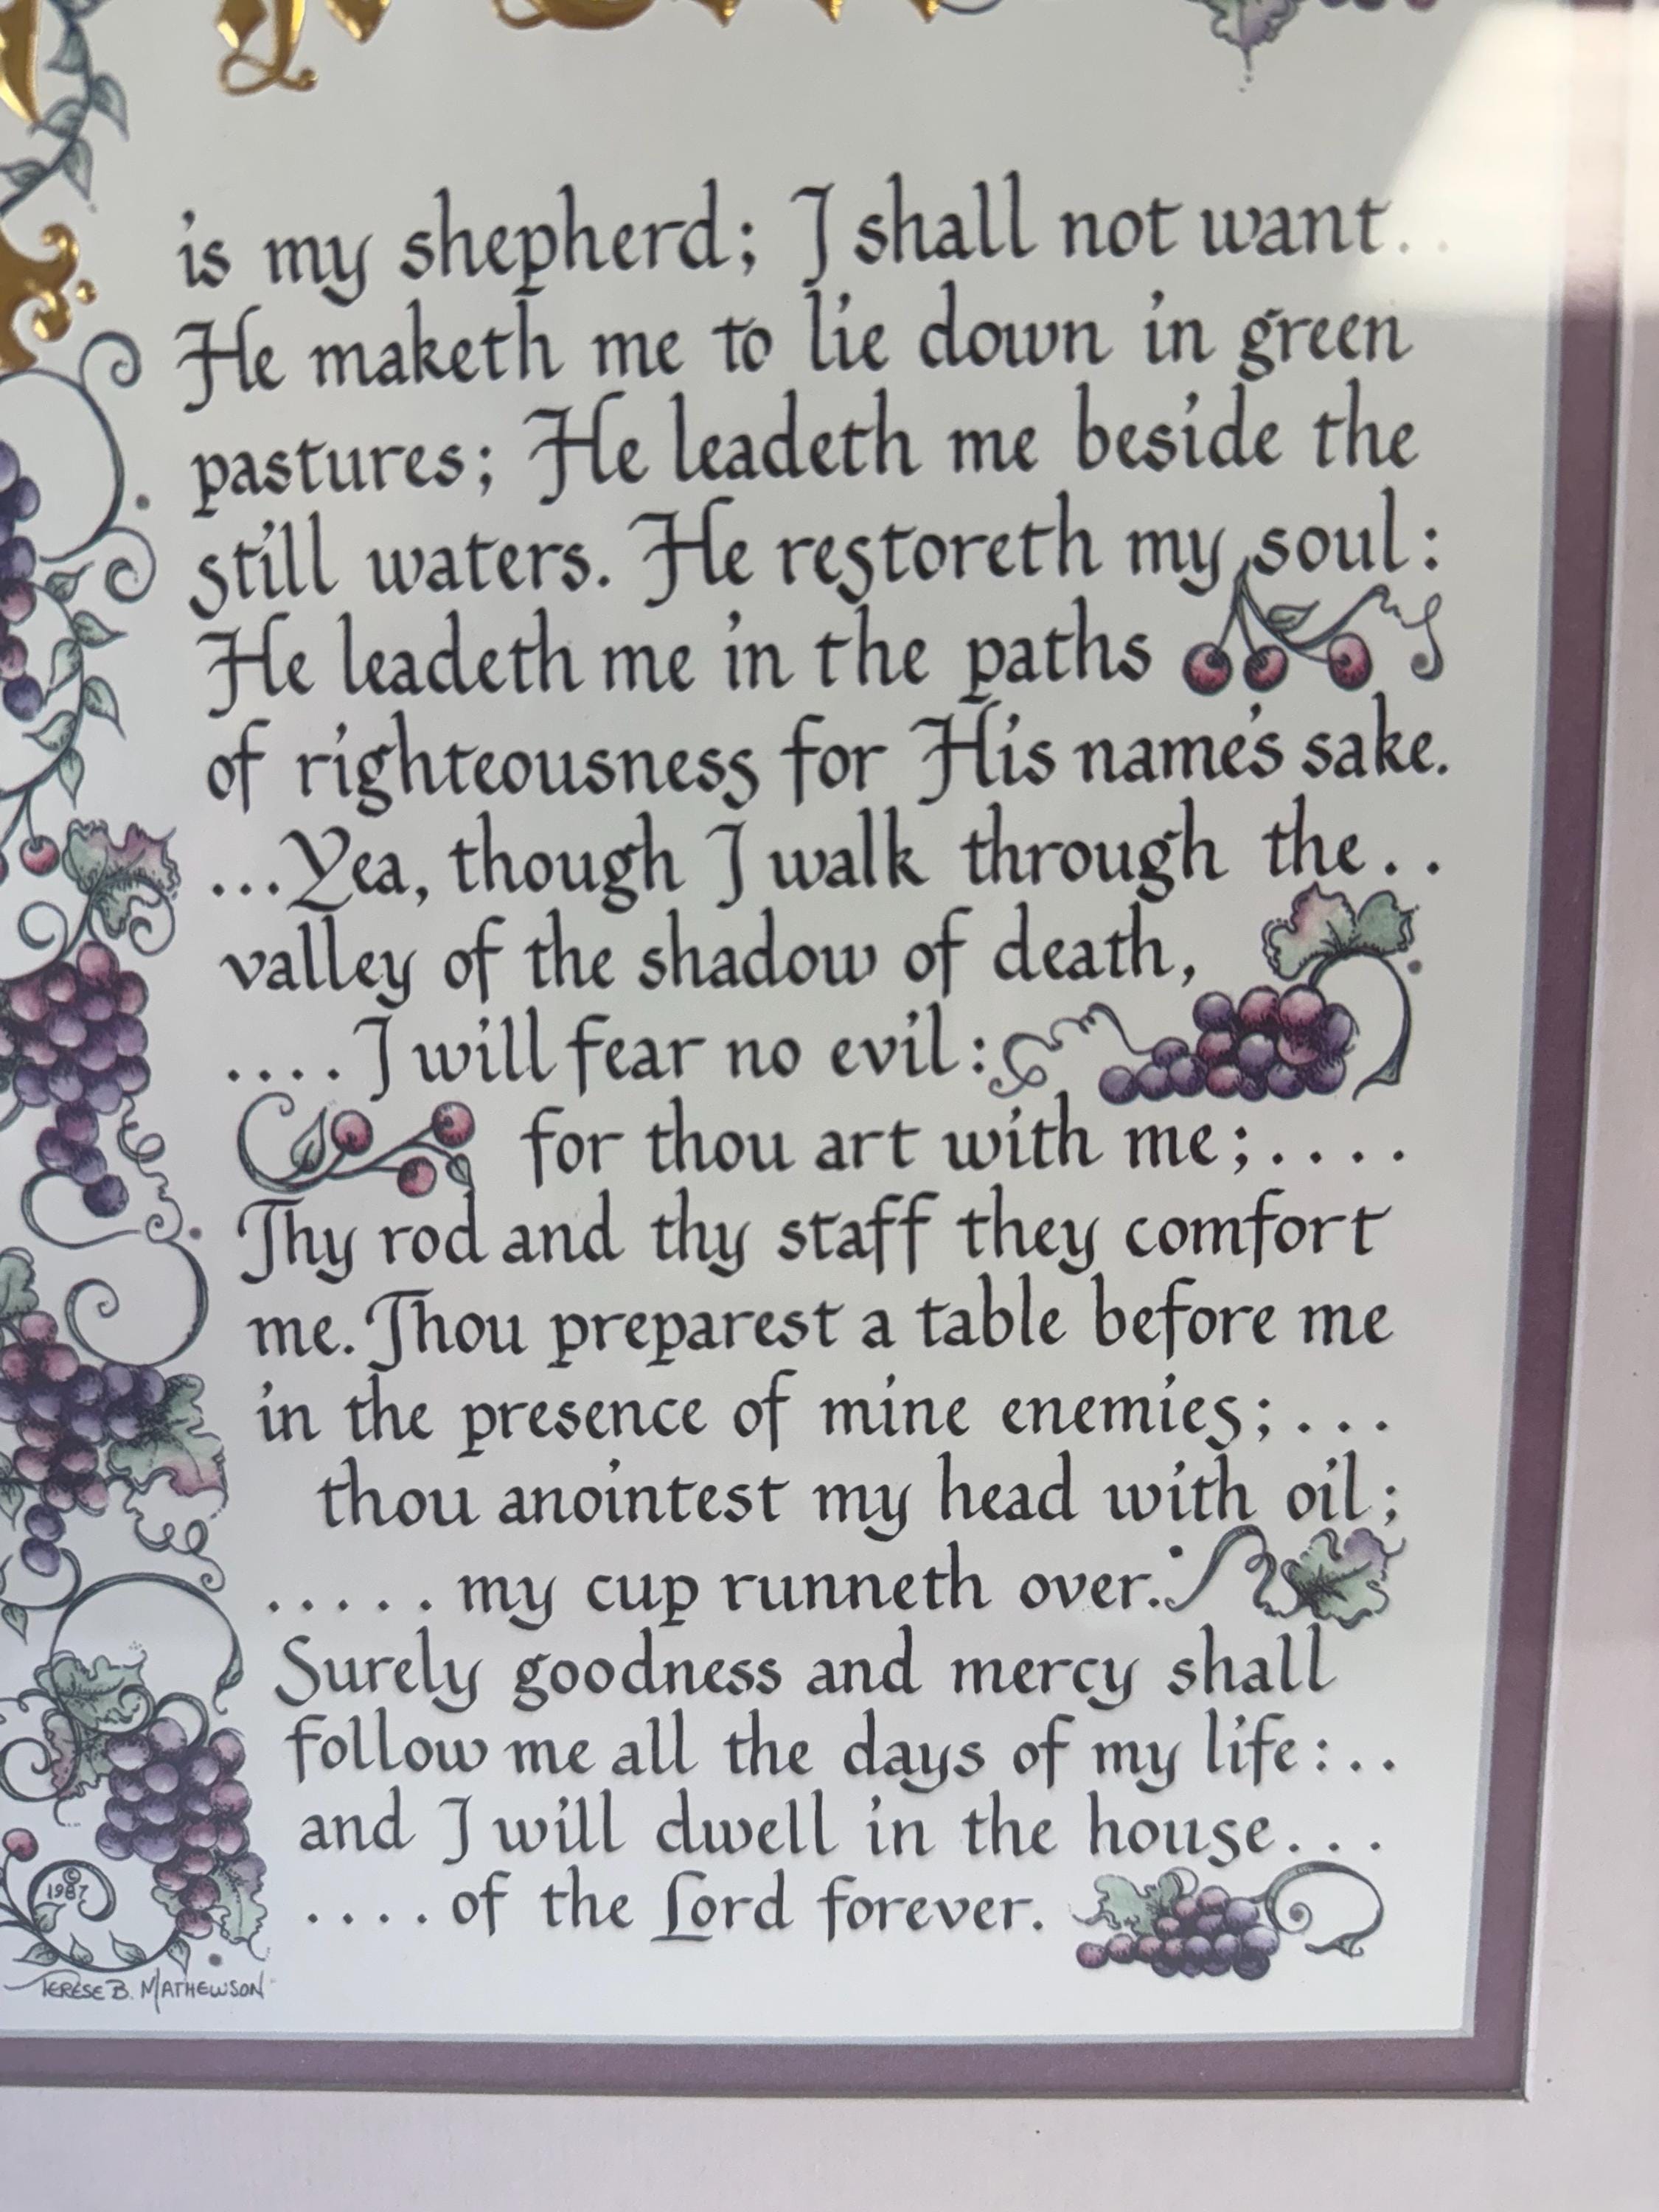 is my shepherd; I shall not want. .
He maketh me to lie down in green
pastures; He leadeth me beside the
still waters. He restoreth my soul:
He leadeth me in the paths
of righteousness for His name's sake.
...Yea, though I walk through the . .
valley of the shadow of death,
. . . . I will fear no evil:
for thou art with me; . . . .
Thy rod and thy staff they comfort
me. Thou preparest a table before me
in the presence of mine enemies; . . .
thou anointest my head with oil;
. . . . . my cup runneth over.
Surely goodness and mercy shall
follow me all the days of my life: . .
and I will dwell in the house . . .
. . . . of the Lord forever.
© 1987
TERESE B. MATHEWSON